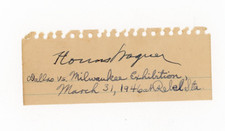 Honus Wagner
Dallas vs. Milwaukee Exhibition,
March 31, 194